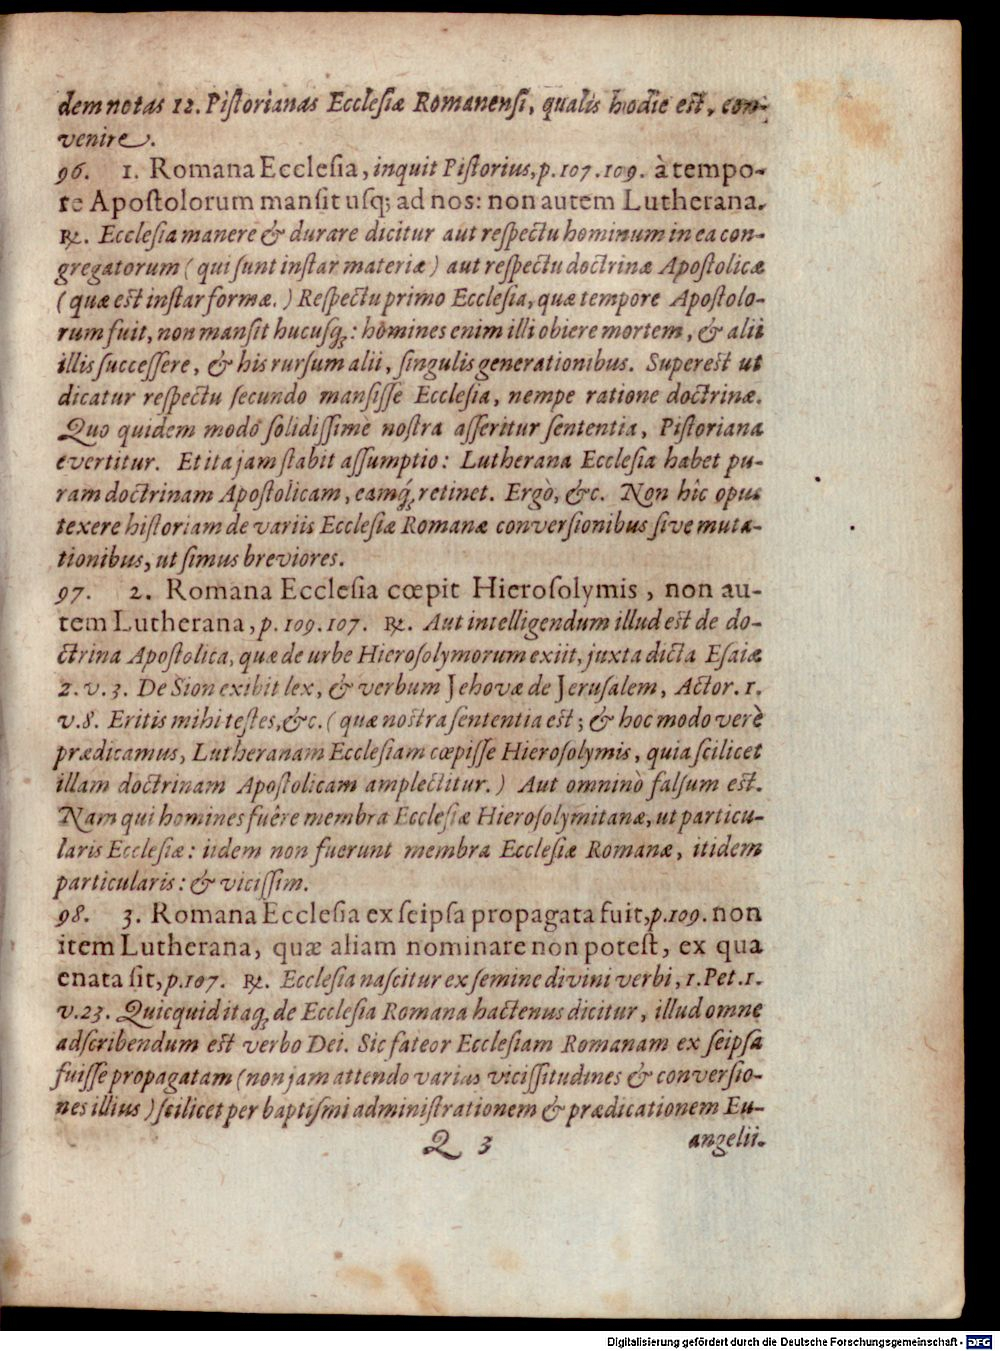 dem notas 12. Pistorianas Ecclesiæ Romanensi, qualis hodie est, con-
venire.
96. 1. Romana Ecclesia, inquit Pistorius, p. 107. 109. à tempo-
re Apostolorum mansit usq; ad nos: non autem Lutherana.
℞. Ecclesia manere & durare dicitur aut respectu hominum in ea con-
gregatorum (qui sunt instar materiæ) aut respectu doctrinæ Apostolicæ
(quæ est instar formæ.) Respectu primo Ecclesia, quæ tempore Apostolo-
rum fuit, non mansit hucusq;: homines enim illi obiere mortem, & alii
illis successere, & his rursum alii, singulis generationibus. Superest ut
dicatur respectu secundo mansisse Ecclesia, nempe ratione doctrinæ.
Quo quidem modo solidissimè nostra asseritur sententia, Pistoriana
evertitur. Et ita jam stabit assumptio: Lutherana Ecclesia habet pu-
ram doctrinam Apostolicam, eamq́; retinet. Ergò, &c. Non hîc opus
texere historiam de variis Ecclesiæ Romanæ conversionibus sive muta-
tionibus, ut simus breviores.
97. 2. Romana Ecclesia cœpit Hierosolymis, non au-
tem Lutherana, p. 109. 107. ℞. Aut intelligendum illud est de do-
ctrina Apostolica, quæ de urbe Hierosolymorum exiit, juxta dicta Esaiæ
2. v. 3. De Sion exibit lex, & verbum Jehovæ de Jerusalem, Actor. 1.
v. 8. Eritis mihi testes, &c. (quæ nostra sententia est; & hoc modo verè
prædicamus, Lutheranam Ecclesiam cœpisse Hierosolymis, quia scilicet
illam doctrinam Apostolicam amplectitur.) Aut omninò falsum est.
Nam qui homines fuêre membra Ecclesiæ Hierosolymitanæ, ut particu-
laris Ecclesiæ: iidem non fuerunt membra Ecclesiæ Romanæ, itidem
particularis: & vicissim.
98. 3. Romana Ecclesia ex seipsa propagata fuit, p. 109. non
item Lutherana, quæ aliam nominare non potest, ex qua
enata sit, p. 107. ℞. Ecclesia nascitur ex semine divini verbi, 1. Pet. 1.
v. 23. Quicquid itaq; de Ecclesia Romana hactenus dicitur, illud omne
adscribendum est verbo Dei. Sic fateor Ecclesiam Romanam ex seipsa
fuisse propagatam (non jam attendo varias vicissitudines & conversio-
nes illius) scilicet per baptismi administrationem & prædicationem Eu-
Q 3 angelii.
Digitalisierung gefördert durch die Deutsche Forschungsgemeinschaft - DFG